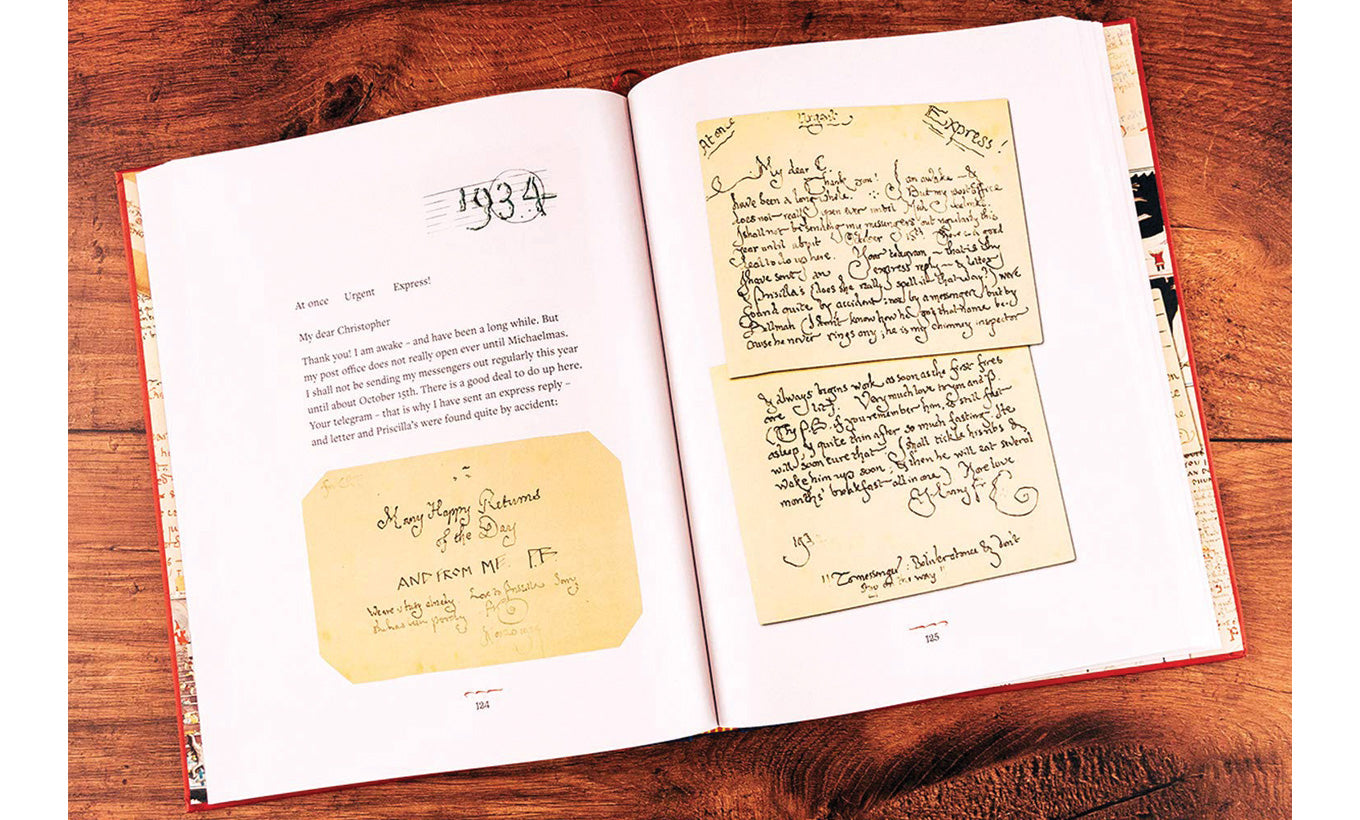 1934
At once Urgent Express!
My dear Christopher
Thank you! I am awake – and have been a long while. But
my post office does not really open ever until Michaelmas.
I shall not be sending my messengers out regularly this year
until about October 15th. There is a good deal to do up here.
Your telegram – that is why I have sent an express reply –
and letter and Priscilla's were found quite by accident:
Many Happy Returns
of the Day
AND FROM ME
Love to Priscilla
she has been poorly
124
At once Urgent Express!
My dear C.
Thank you! I am awake &
have been a long while. But my post office
does not really open ever until
I shall not be sending my messengers out regularly this
year until about October 15th. There is a good
deal to do up here. Your telegram – that is why
I have sent an express reply – & letter
& Priscilla's (does she really spell it that way?) were
found quite by accident: not by a messenger but by
I don't know how he got that name be-
cause he never rings any; he is my chimney inspector
& always begins work as soon as the first fires
are lit. Very much love to you and P.
(The P.B. if you remember him, is still fast
asleep, & quite thin after so much fasting. He
will soon cure that. I shall tickle his ribs &
wake him up soon; & then he will eat several
months' breakfast all in one.) More love
193
"To messenger: Deliver at once & don't
stop on the way"
125